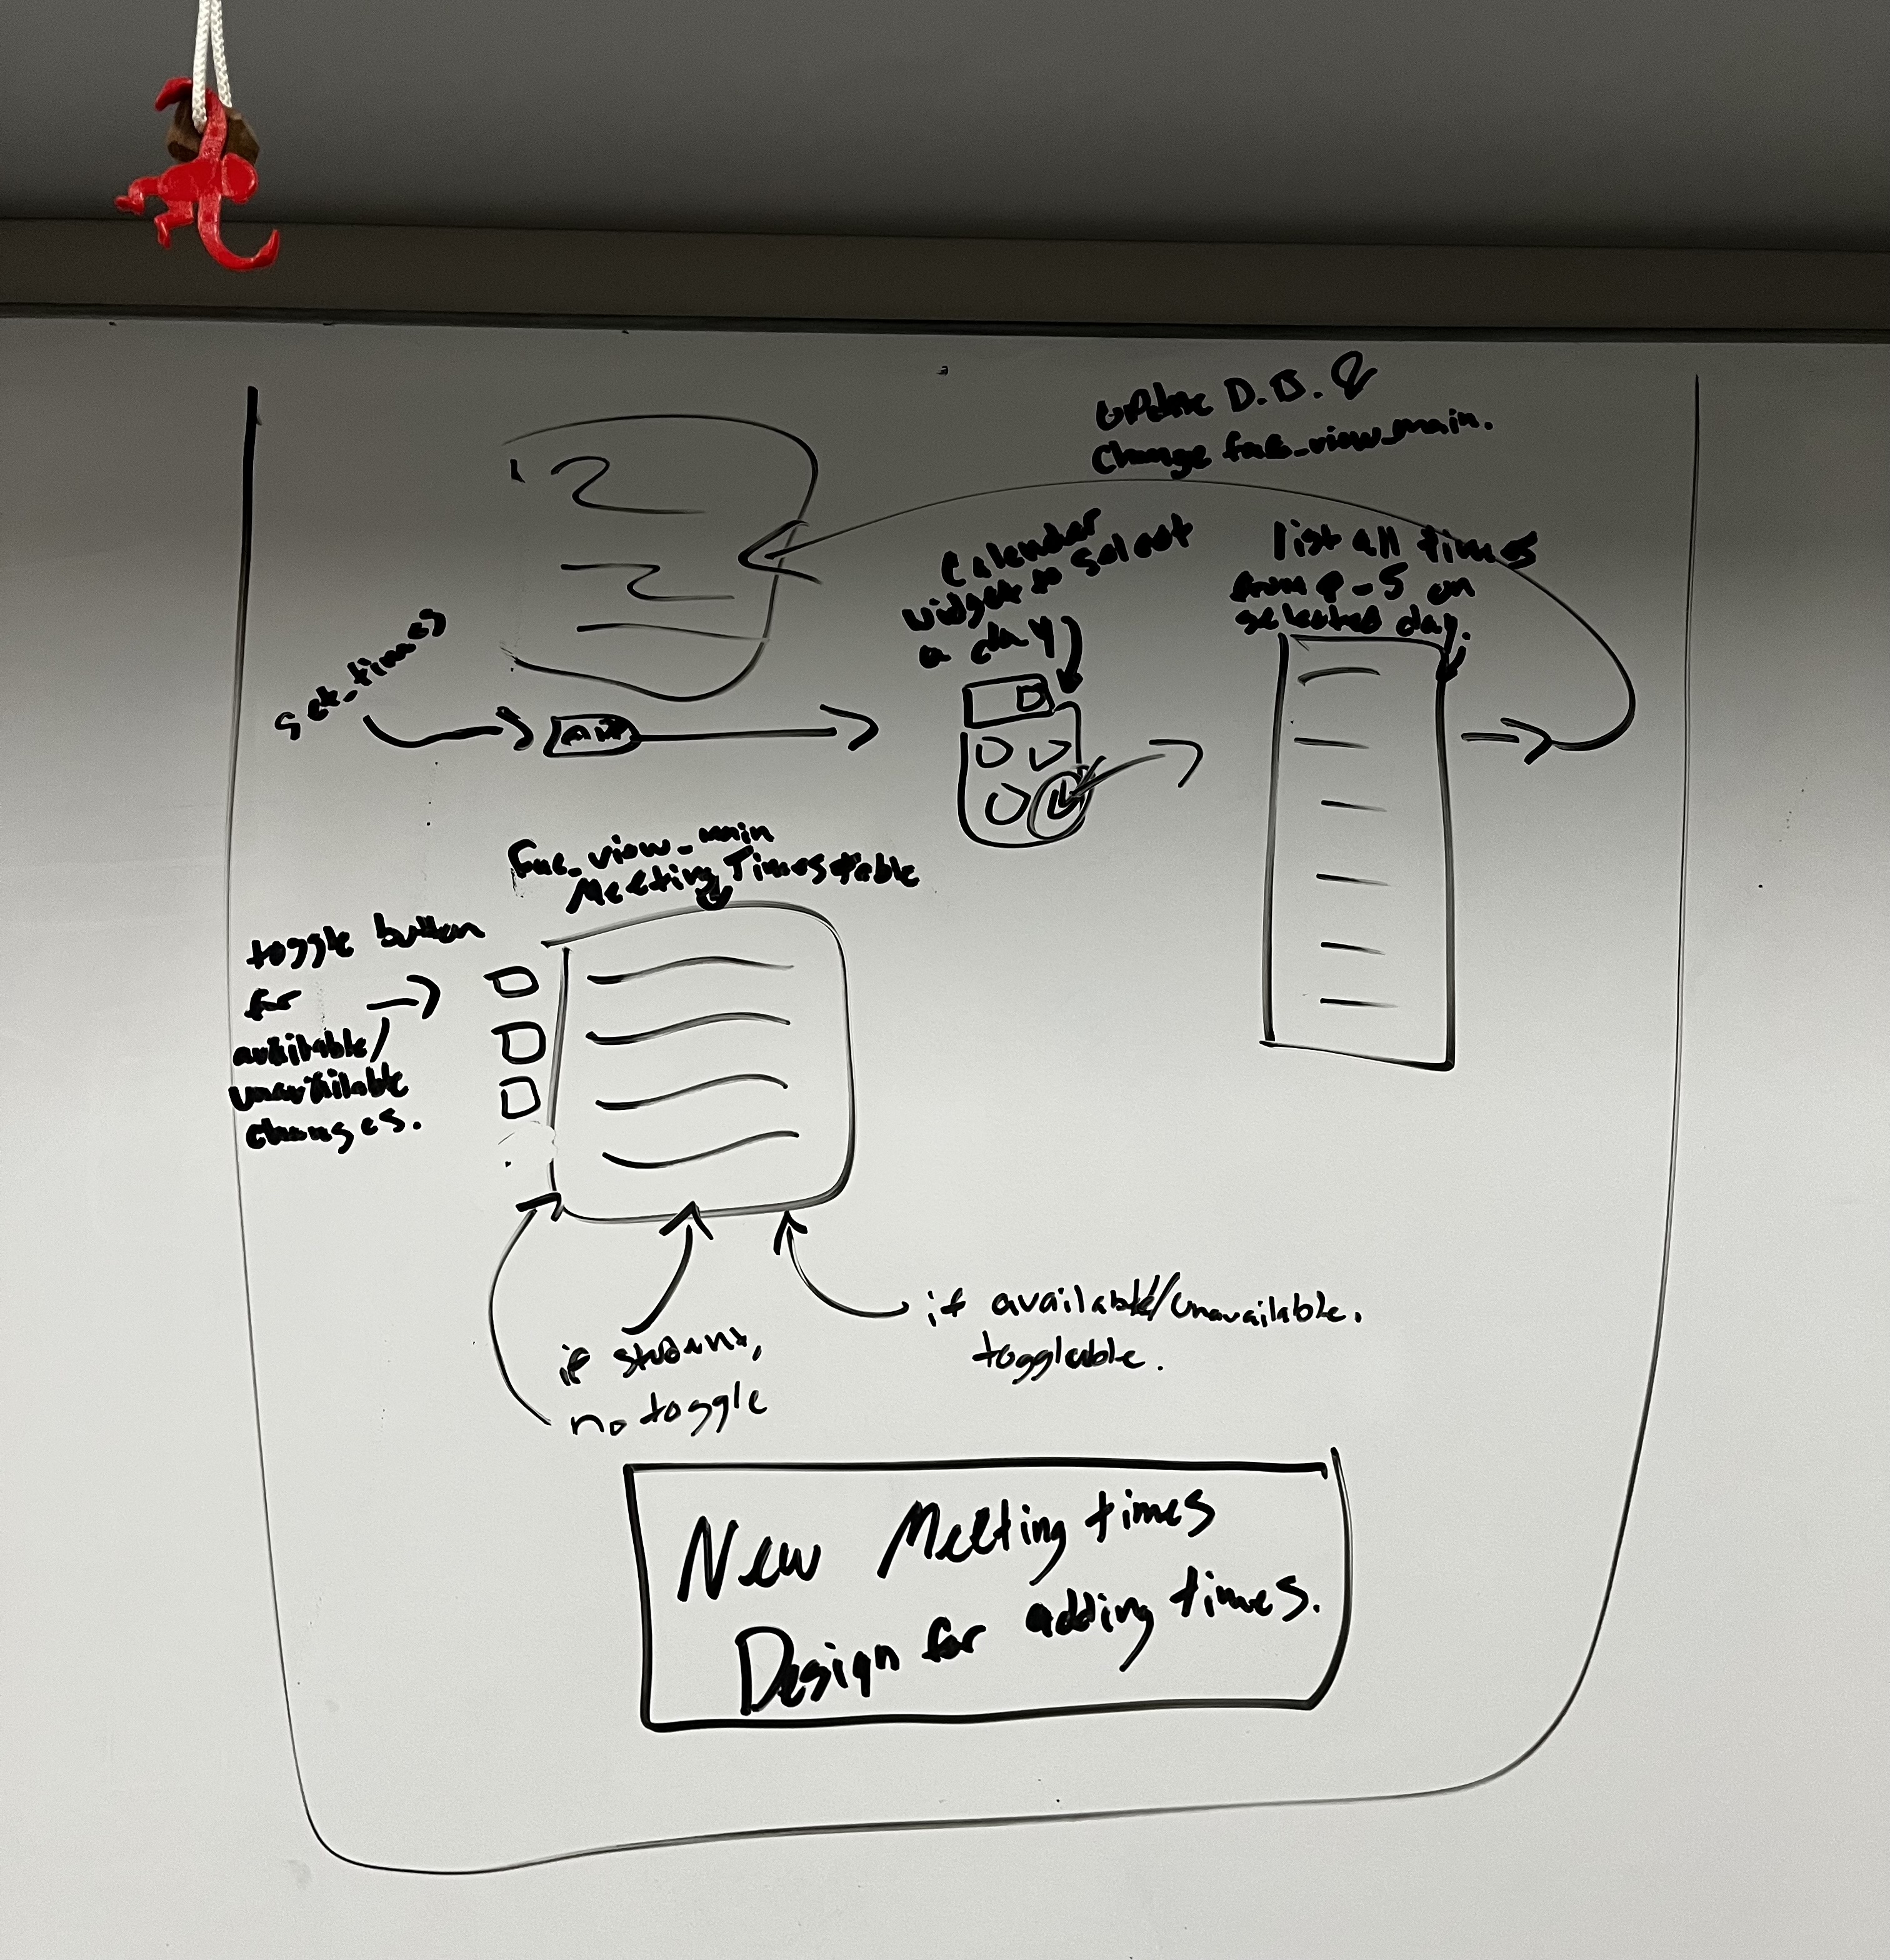 update D.B. &
Change fac_view_main.
Calendar
widget to select
a day
list all times
from 9-5 on
selected day.
set_times
Fac_view_main
Meeting Times table
toggle button
for
available/
unavailable
changes.
if available/unavailable.
togglable.
if student,
no toggle
New Meeting times
Design for adding times.